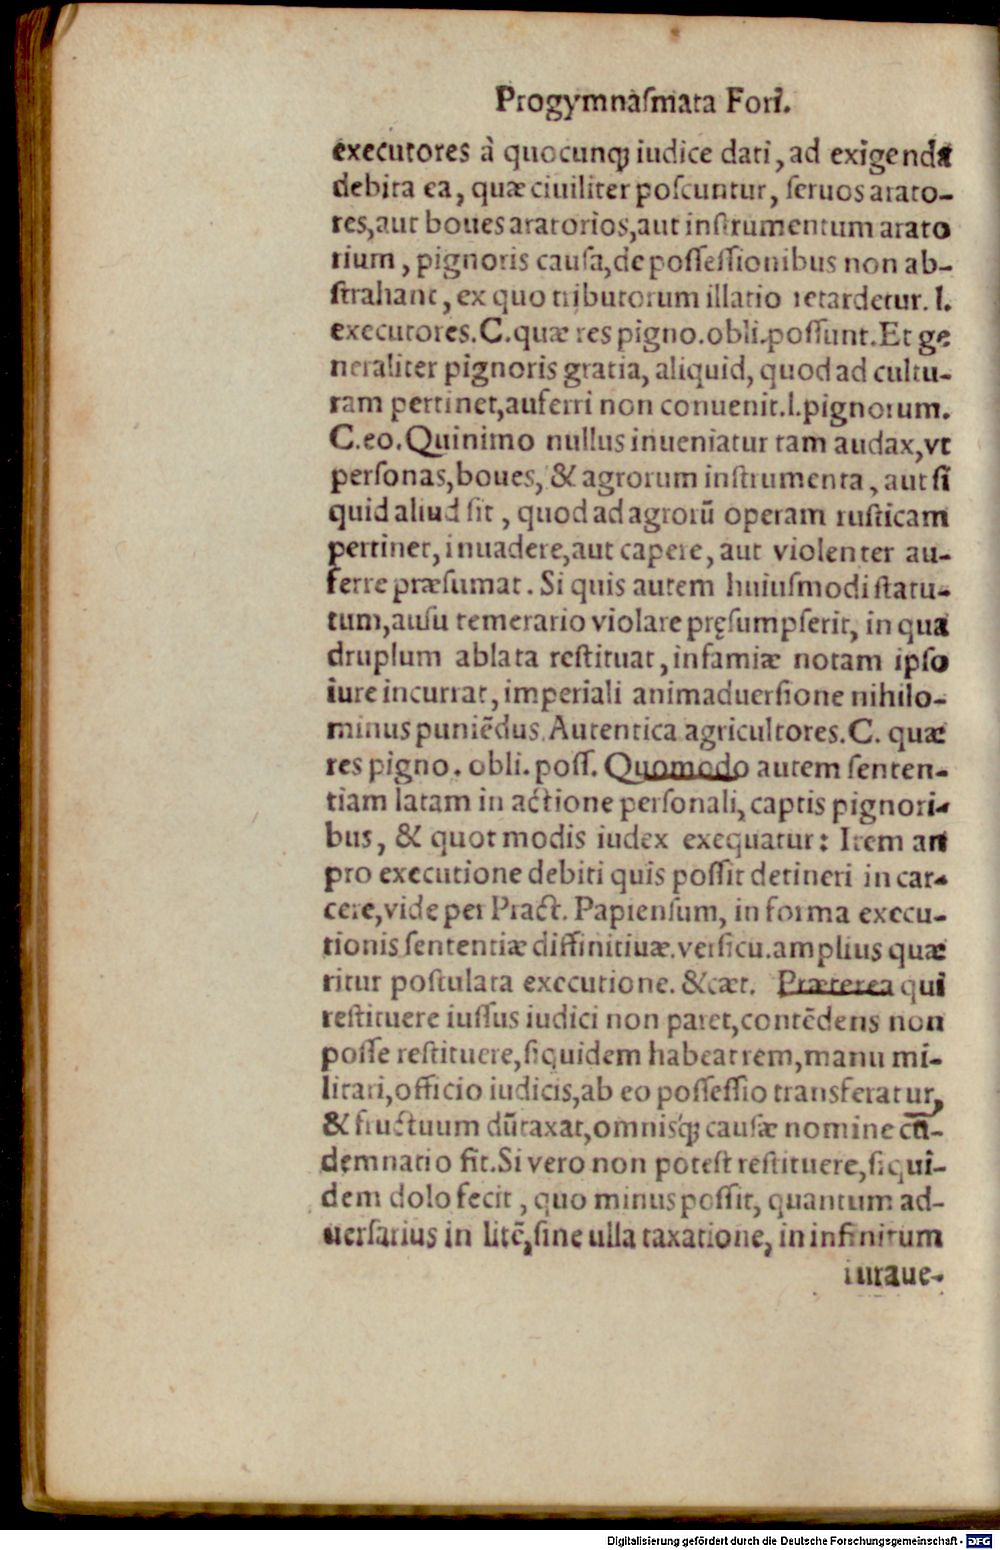 Progymnaſmata Fori.
executores à quocunqꝫ iudice dati, ad exigenda
debita ea, quæ ciuiliter poſcuntur, ſeruos arato-
res, aut boues aratorios, aut inſtrumentum arato
rium, pignoris cauſa, de poſſeſſionibus non ab-
ſtrahant, ex quo tributorum illatio retardetur. l.
executores. C. quæ res pigno. obli. poſſunt. Et ge
neraliter pignoris gratia, aliquid, quod ad cultu-
ram pertinet, auferri non conuenit. l. pignorum.
C. eo. Quinimo nullus inueniatur tam audax, vt
perſonas, boues, & agrorum inſtrumenta, aut ſi
quid aliud ſit, quod ad agrorū operam ruſticam
pertinet, inuadere, aut capere, aut violenter au-
ferre præſumat. Si quis autem huiuſmodi ſtatu-
tum, auſu temerario violare pręſumpſerit, in qua
druplum ablata reſtituat, infamiæ notam ipſo
iure incurrat, imperiali animaduerſione nihilo-
minus puniēdus. Autentica agricultores. C. quæ
res pigno. obli. poſſ. Quomodo autem ſenten-
tiam latam in actione perſonali, captis pignori-
bus, & quot modis iudex exequatur: Item an
pro executione debiti quis poſſit detineri in car-
cere, vide per Pract. Papienſum, in forma execu-
tionis ſententiæ diffinitiuæ. verſicu. amplius quæ
ritur poſtulata executione. &cæt. Præterea qui
reſtituere iuſſus iudici non paret, contēdens non
poſſe reſtituere, ſiquidem habeat rem, manu mi-
litari, officio iudicis, ab eo poſſeſſio transferatur,
& fructuum dūtaxat, omniſqꝫ cauſæ nomine cō-
demnatio fit. Si vero non poteſt reſtituere, ſiqui-
dem dolo fecit, quo minus poſſit, quantum ad-
uerſarius in litē, ſine ulla taxatione, in infinitum
iuraue-
Digitalisierung gefördert durch die Deutsche Forschungsgemeinschaft - DFG